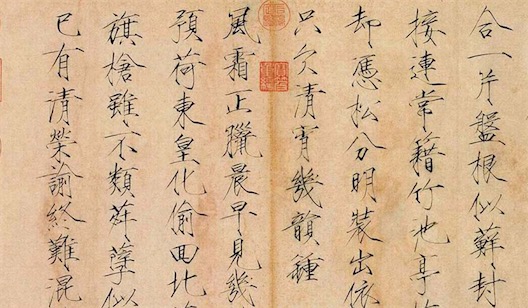 合一片盤根似蘚封
接連常籍竹池亭
却憑松分明裝出依
只欠清宵幾韻鍾
風霜正臘晨早見幾
預荷東皇化偷回北
旗槍雖不類荈孽似
已有清榮諭終難混